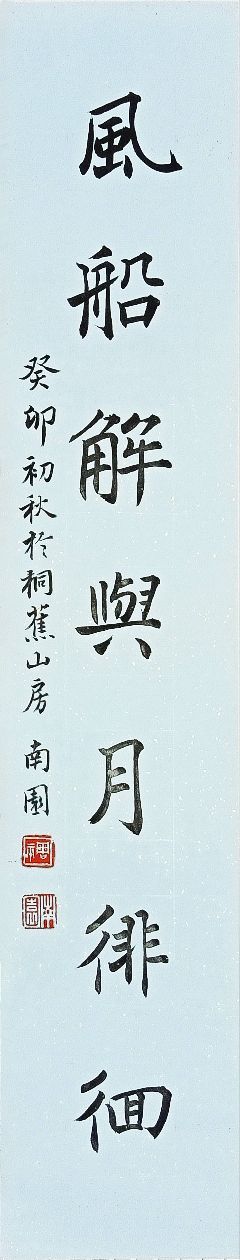 風船解與月徘徊
癸卯初秋於桐蕉山房 南園
南園